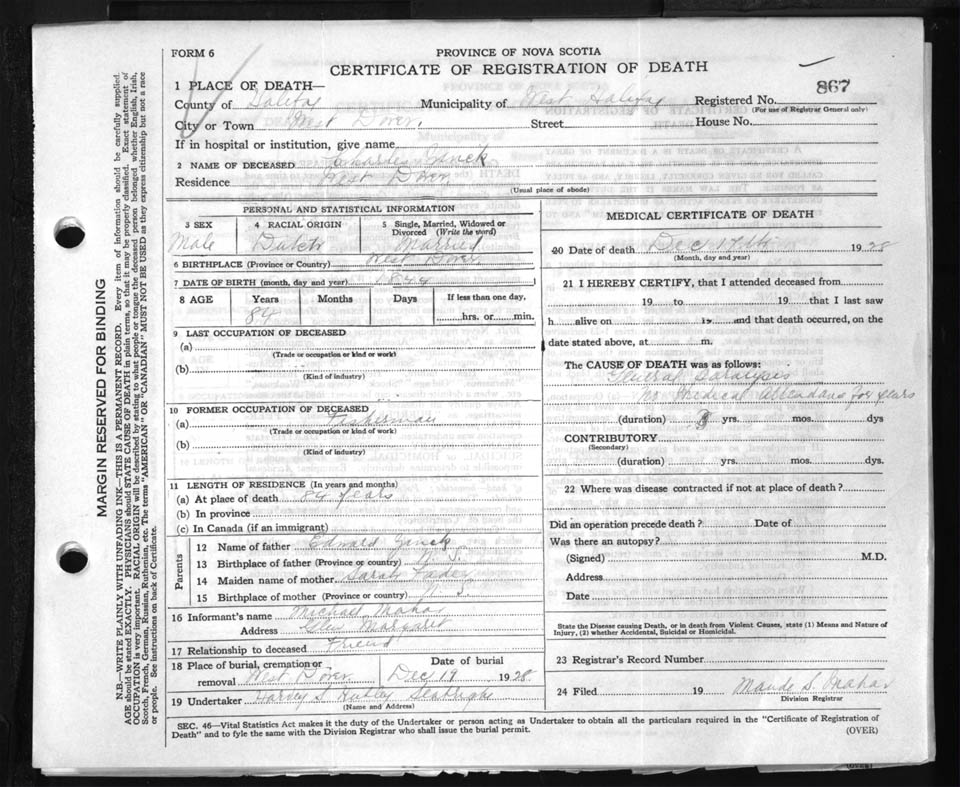 FORM 6
PROVINCE OF NOVA SCOTIA
CERTIFICATE OF REGISTRATION OF DEATH
867
1 PLACE OF DEATH—
County of Halifax Municipality of West Halifax Registered No.
(For use of Registrar General only)
City or Town West Dover, Street House No.
If in hospital or institution, give name
2 NAME OF DECEASED Zinck
Residence West Dover
(Usual place of abode)
PERSONAL AND STATISTICAL INFORMATION
3 SEX 4 RACIAL ORIGIN 5 Single, Married, Widowed or Divorced (Write the word)
Male Dutch Married
6 BIRTHPLACE (Province or Country) West Dover
7 DATE OF BIRTH (month, day and year) 1844
8 AGE Years Months Days If less than one day,
84 hrs. or min.
9 LAST OCCUPATION OF DECEASED
(a)
(Trade or occupation or kind or work)
(b)
(Kind of industry)
10 FORMER OCCUPATION OF DECEASED
(a) Fisherman
(Trade or occupation or kind of work)
(b)
(Kind of industry)
11 LENGTH OF RESIDENCE (In years and months)
(a) At place of death 84 years
(b) In province
(c) In Canada (if an immigrant)
Parents
12 Name of father Edward Zinck
13 Birthplace of father (Province or country) N. S.
14 Maiden name of mother Sarah Fader
15 Birthplace of mother (Province or country) N. S.
16 Informant's name Michael Mahar
Address Glen Margaret
17 Relationship to deceased Friend
18 Place of burial, cremation or removal West Dover
Date of burial Dec 19 1928
19 Undertaker Harvey S.
(Name and Address)
MEDICAL CERTIFICATE OF DEATH
20 Date of death Dec 17th 1928
(Month, day and year)
21 I HEREBY CERTIFY, that I attended deceased from
19 to 19 that I last saw
h alive on 19 and that death occurred, on the
date stated above, at m.
The CAUSE OF DEATH was as follows:
General Paralysis
no medical attendance for years
(duration) yrs. mos. dys
CONTRIBUTORY
(Secondary)
(duration) yrs. mos. dys.
22 Where was disease contracted if not at place of death?
Did an operation precede death? Date of
Was there an autopsy?
(Signed) M.D.
Address
Date
State the Disease causing Death, or in death from Violent Causes, state (1) Means and Nature of
Injury, (2) whether Accidental, Suicidal or Homicidal.
23 Registrar's Record Number
24 Filed 19 Maude S. Mahar
Division Registrar
SEC. 46—Vital Statistics Act makes it the duty of the Undertaker or person acting as Undertaker to obtain all the particulars required in the "Certificate of Registration of
Death" and to fyle the same with the Division Registrar who shall issue the burial permit.
(OVER)
MARGIN RESERVED FOR BINDING
N.B.—WRITE PLAINLY WITH UNFADING INK—THIS IS A PERMANENT RECORD. Every item of information should be carefully supplied.
AGE should be stated EXACTLY. PHYSICIANS should STATE CAUSE OF DEATH in plain terms, so that it may be properly classified. Exact statement of
OCCUPATION is very important. RACIAL ORIGIN will be described by stating to what people or tongue the deceased person belonged whether English, Irish,
Scotch, French, German, Russian, Ruthenian, etc. The terms "AMERICAN" OR "CANADIAN" MUST NOT BE USED as they express citizenship but not a race
or people. See instructions on back of Certificate.